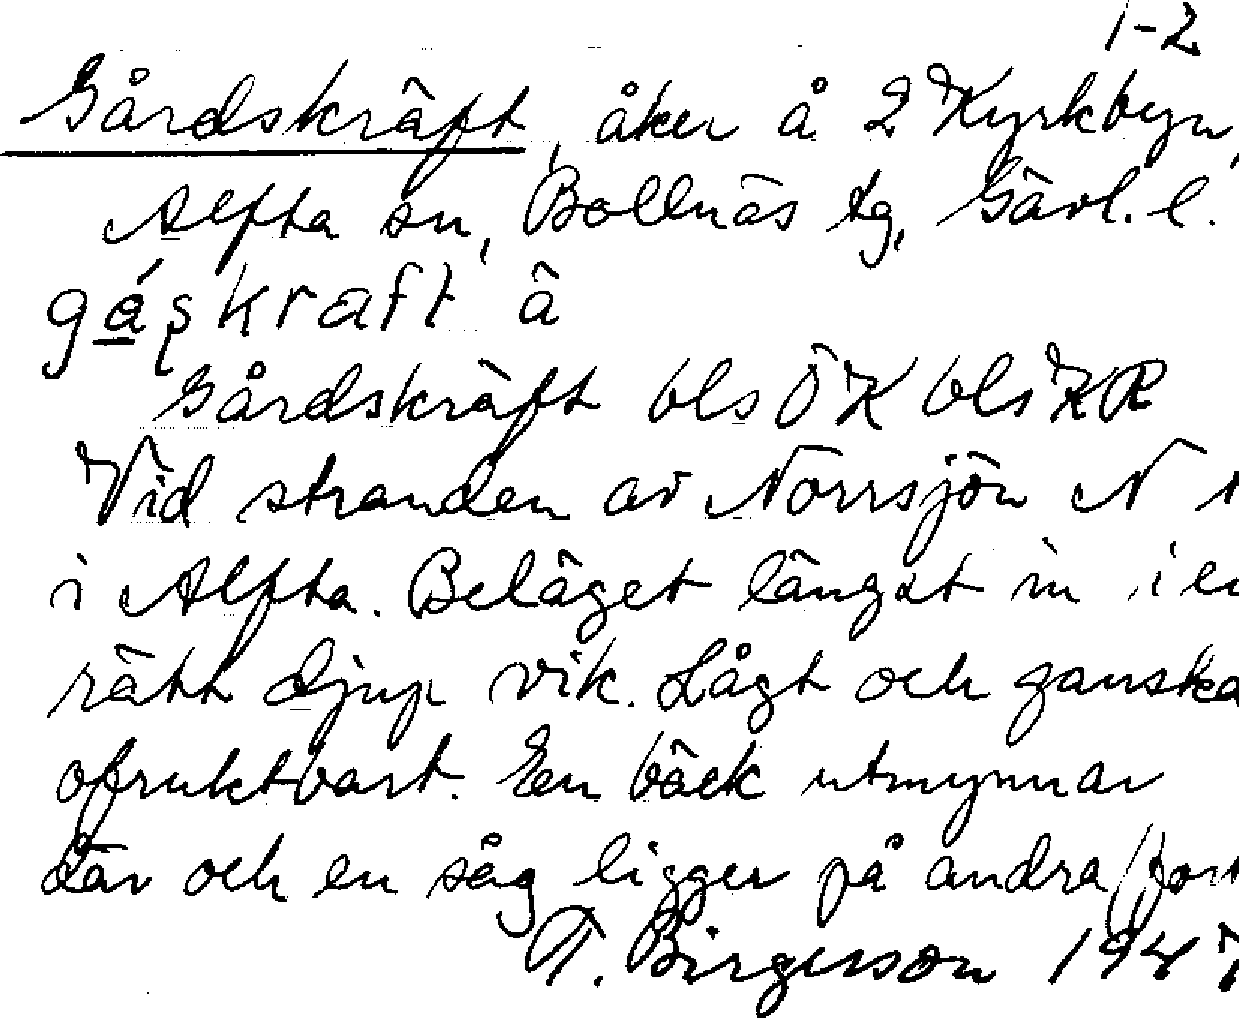 1-2
Gårdskräft, åker å 2 Kyrkbyn,
Alfta sn, Bollnäs tg, Gävl. l.
gáʂkraft å
Gårdskräft bls ÖK bls KR
Vid stranden av Norrsjön N
i Alfta. Beläget längst in i en
rätt djup vik. Lågt och ganska
ofruktbart. En bäck utmynnar
där och en såg ligger på andra
T. Birgerson 1947